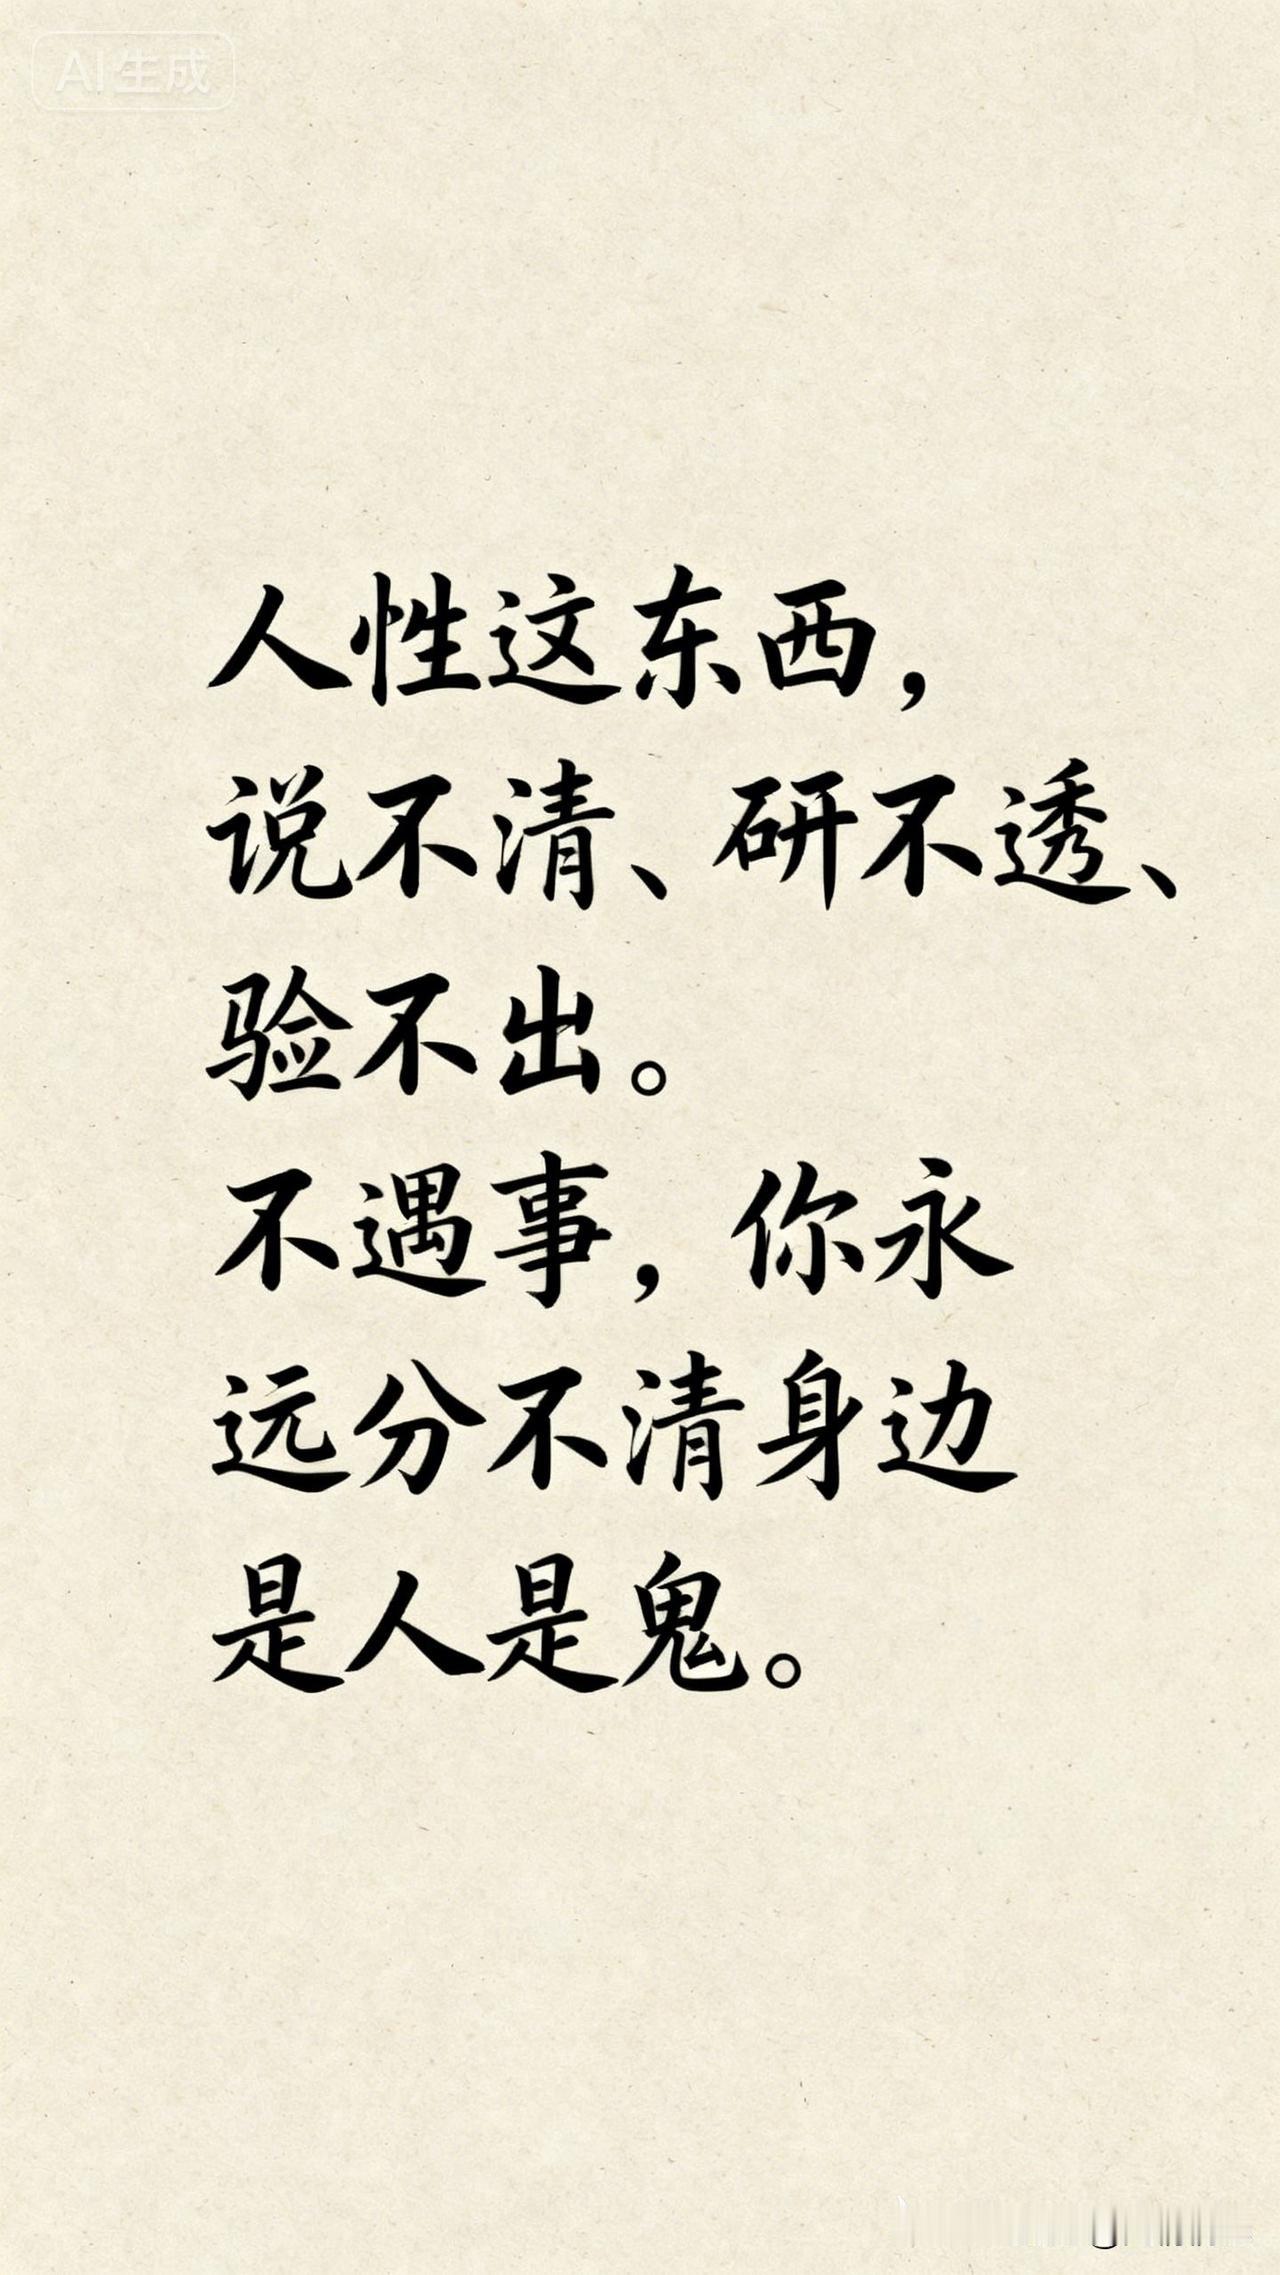 AI生成
人性这东西，
说不清、研不透、
验不出。
不遇事，你永
远分不清身边
是人是鬼。